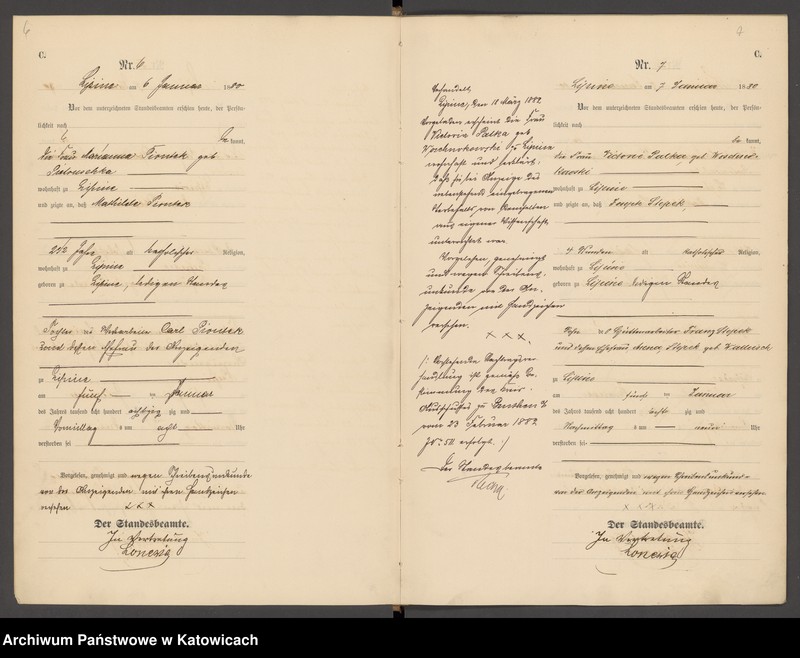 6
C.
Nr. 6
Lipine am 6 Januar 1880
Vor dem unterzeichneten Standesbeamten erschien heute, der Persön-
lichkeit nach
be kannt,
die Frau Marianna Piontek geb
wohnhaft zu Lipine
und zeigte an, daß Mathilde Piontek
2 1/2 Jahr alt katholischer Religion,
wohnhaft zu Lipine
geboren zu Lipine, ledigen Standes
Tochter des Carl Piontek
und dessen Ehefrau der Anzeigenden
zu Lipine
am fünf ten Januar
des Jahres tausend acht hundert achtzig zig und
Vormittag s um acht Uhr
verstorben sei
Vorgelesen, genehmigt und wegen Schreibensunkunde
von der Anzeigenden mit ihren Handzeichen
versehen
x x x
Der Standesbeamte.
In Vertretung
7
Verhandelt
Lipine, den 18 März 1882
Vorgeladen erscheint die Frau
Victoria Palka geb
Lipine
wohnhaft und erklärt,
daß sie bei Anzeige des
nebenstehend eingetragenen
Sterbefalls von demselben
aus eigener Wissenschaft
unterrichtet war.
Vorgelesen, genehmigt
und wegen Schreibens-
unkunde von der An-
zeigenden mit Handzeichen
versehen.
x x x.
/: Vorstehende
handlung ist gemäß Be-
stimmung des Kreis-
Ausschusses zu Beuthen
vom 23 Februar 1882
erfolgt. :/
Der Standesbeamte
C.
Nr. 7
Lipine am 7 Januar 1880
Vor dem unterzeichneten Standesbeamten erschien heute, der Persön-
lichkeit nach
be kannt,
die Frau Victoria Palka, geb
wohnhaft zu Lipine
und zeigte an, daß Stopek,
4 Stunden alt katholischer Religion,
wohnhaft zu Lipine
geboren zu Lipine ledigen Standes
Sohn des Hüttenarbeiter Franz Stopek
und dessen Ehefrau Stopek geb.
zu Lipine
am fünf ten Januar
des Jahres tausend acht hundert acht zig und
Nachmittag s um neun Uhr
verstorben sei
Vorgelesen, genehmigt und wegen Schreibensunkunde
von der Anzeigenden mit ihren Handzeichen versehen.
x x x
Der Standesbeamte.
In Vertretung
Archiwum Państwowe w Katowicach